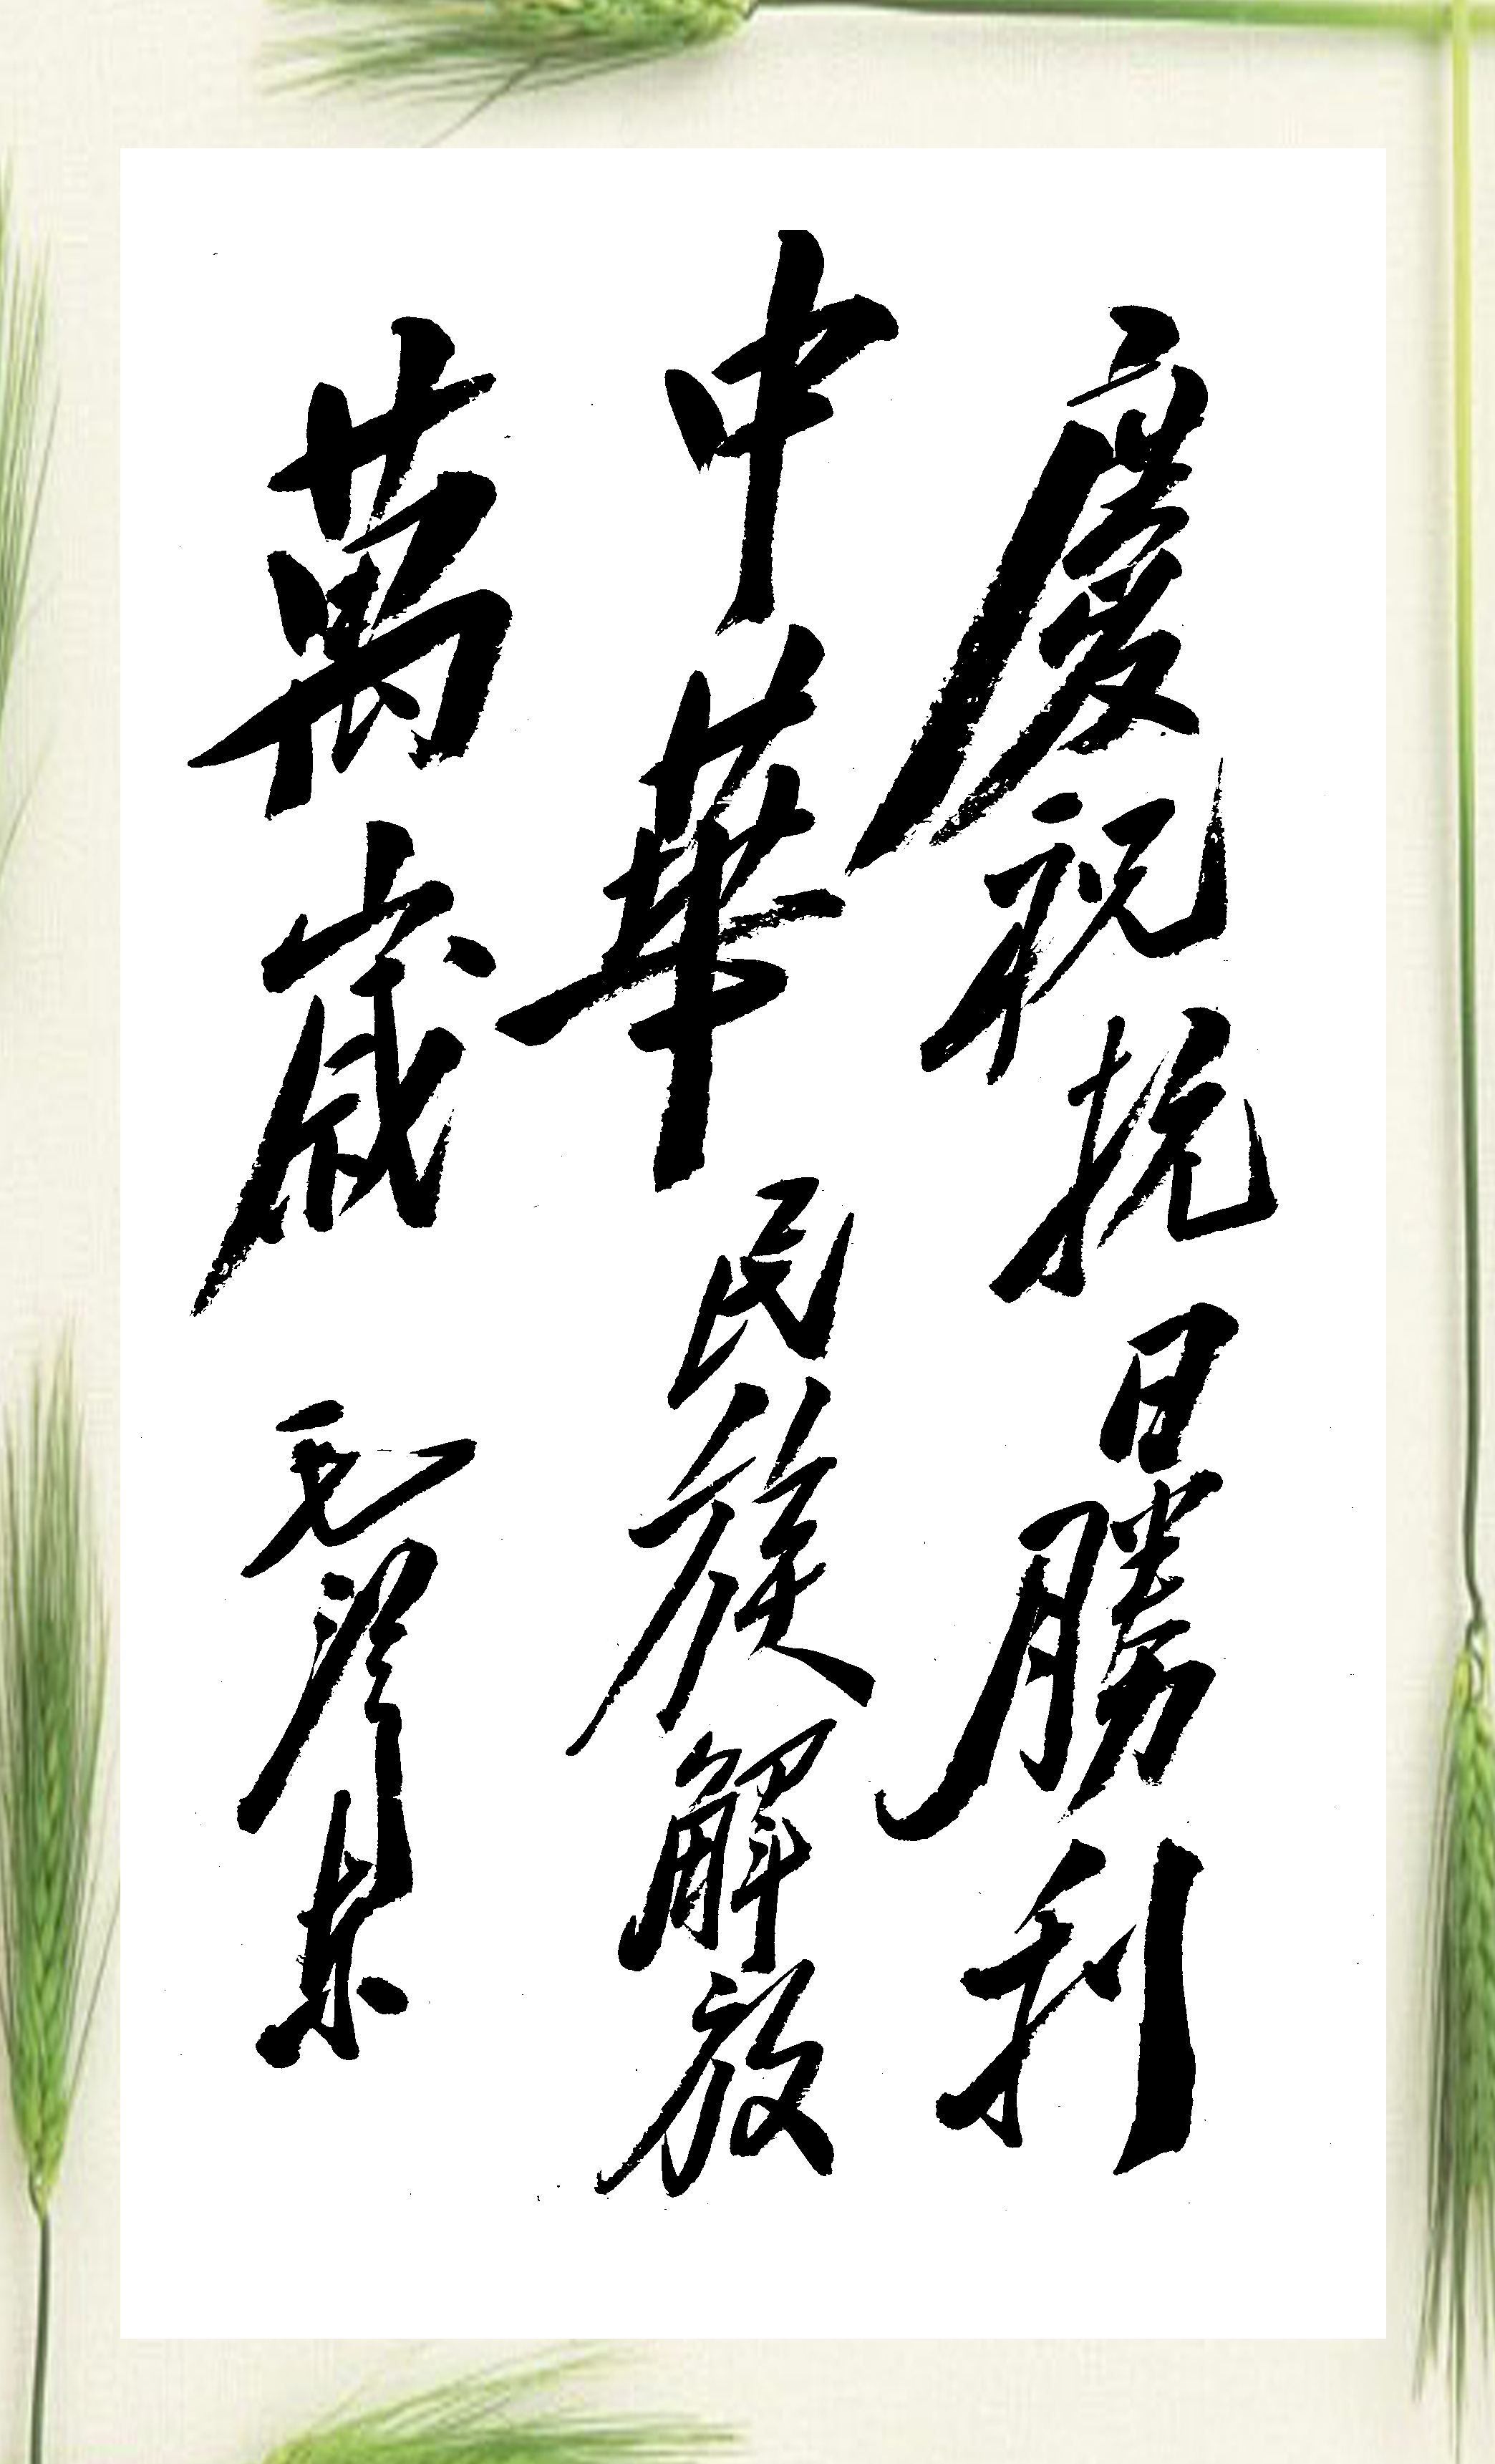 慶祝抗日勝利
中華民族解放
萬歲 毛澤東